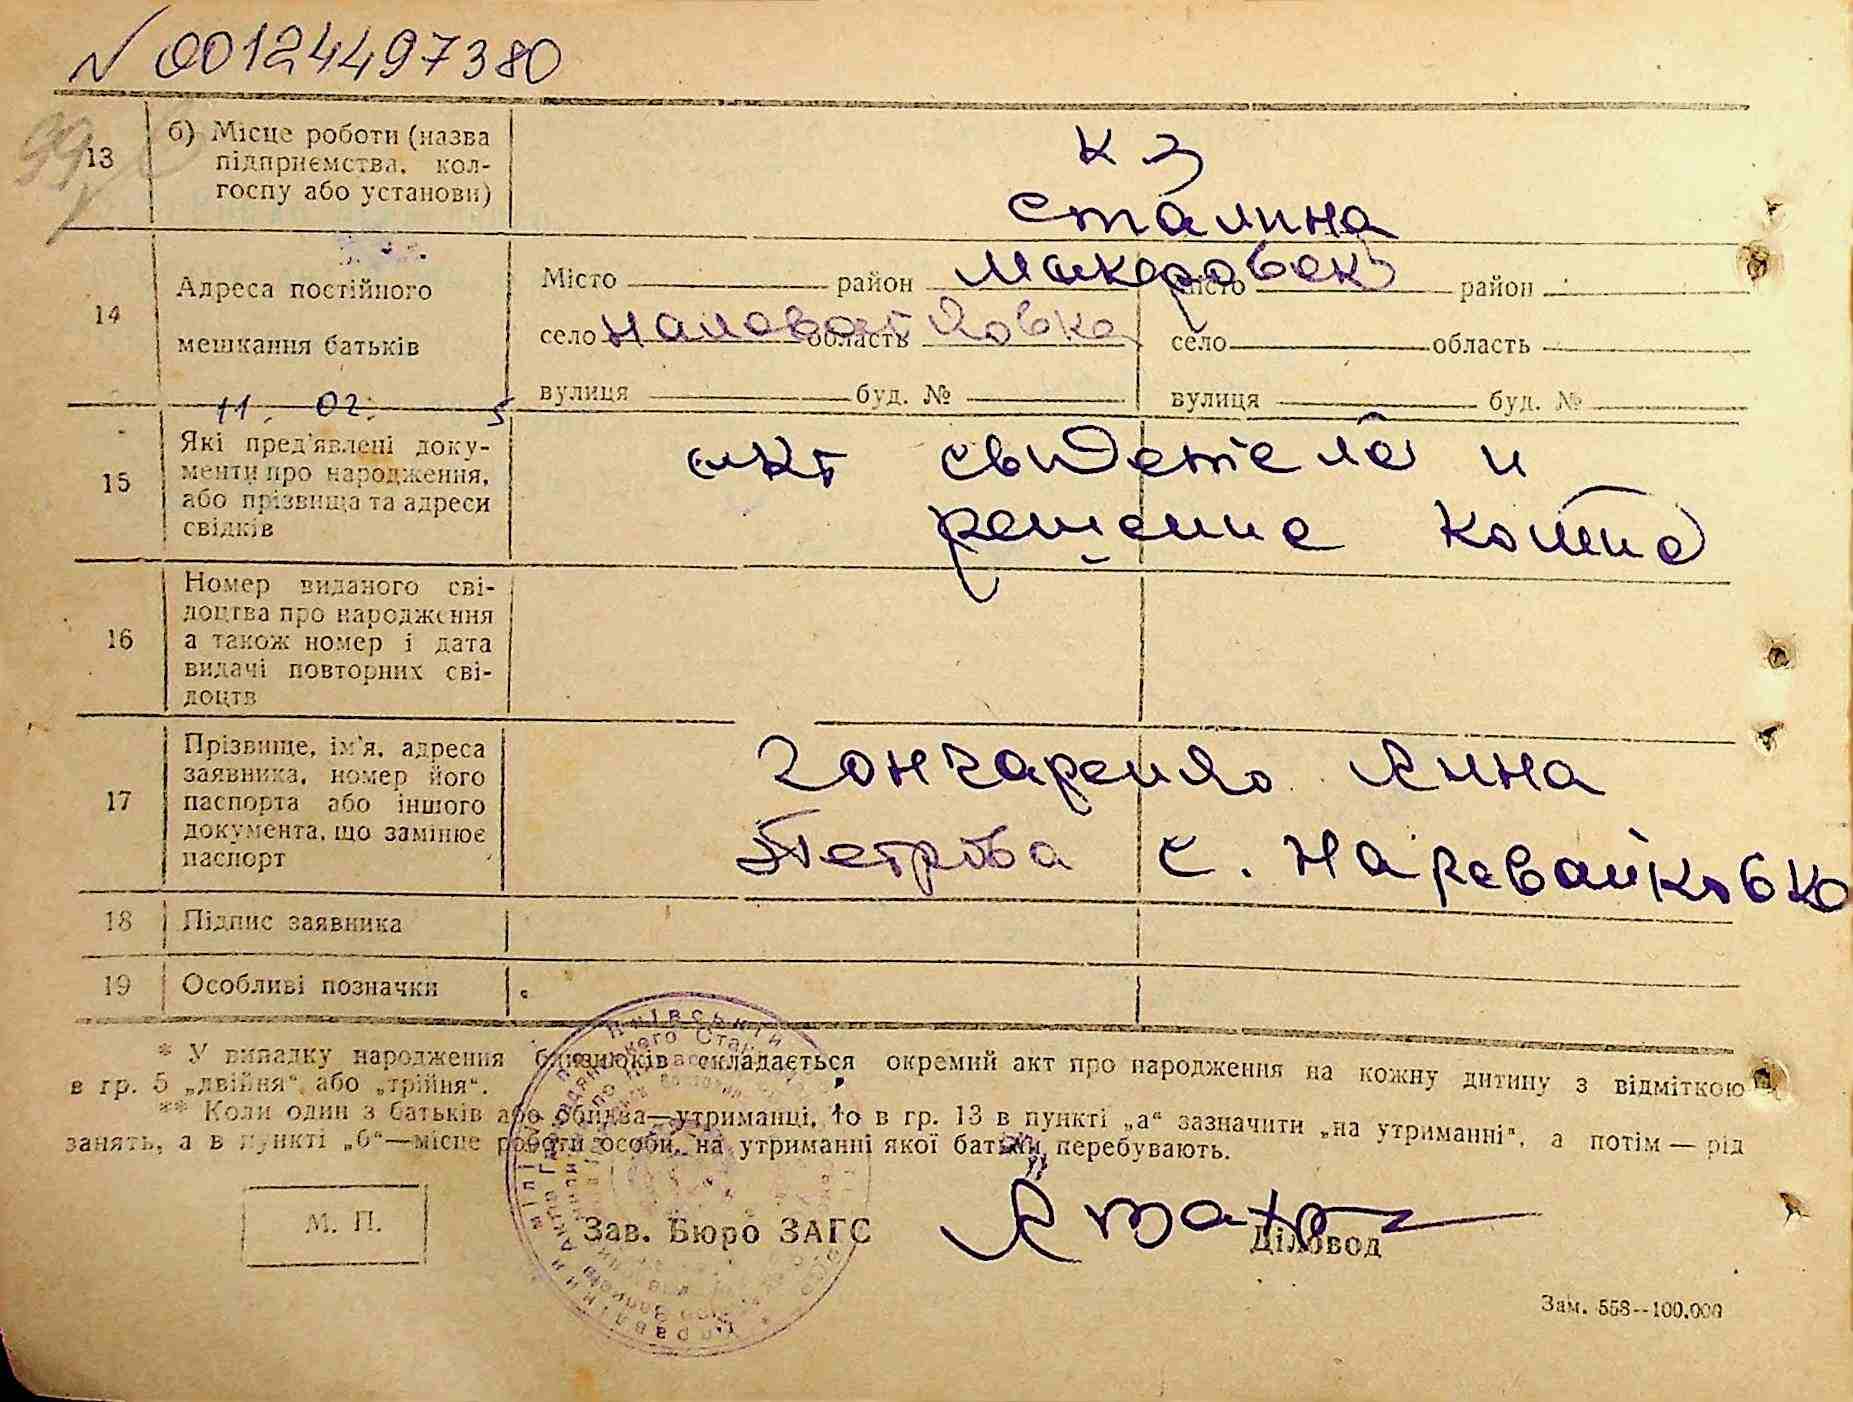 N 00124497380
13 б) Місце роботи (назва
підприємства, кол-
госпу або установи)
К З
Сталина
14 Адреса постійного
мешкання батьків
Місто район Макаровск місто район
село область село область
вулиця буд. № вулиця буд. №
11. 02.
15 Які пред'явлені доку-
менти про народження,
або прізвища та адреси
свідків
акт свидетеля и
решение
16 Номер виданого сві-
доцтва про народження
а також номер і дата
видачі повторних сві-
доцтв
17 Прізвище, ім'я, адреса
заявника, номер його
паспорта або іншого
документа, що замінює
паспорт
Гончаренко Анна
Петрова с. Наревайковка
18 Підпис заявника
19 Особливі позначки
* У випадку народження близнюків складається окремий акт про народження на кожну дитину з відміткою
в гр. 5 „двійня“ або „трійня“.
** Коли один з батьків або обидва—утриманці, то в гр. 13 в пункті „а“ зазначити „на утриманні“, а потім — рід
занять, а в пункті „б“—місце роботи особи, на утриманні якої батьки перебувають.
М. П.
Зав. Бюро ЗАГС
Діловод
Зам. 558--100.000